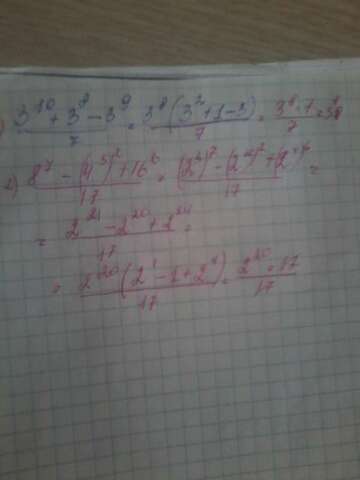 ) (3^10 + 3^8 - 3^9)/7 = (3^8(3^2+1-3))/7 = (3^8·7)/7 = 3^8
2) (8^7 - (4^5)^2 + 16^6)/17 = ((2^3)^7 - (2^10)^2 + (2
= (2^21 - 2^20 + 2^24)/17 =
= (2^20(2^1 - 1 + 2^4))/17 = (2^20 · 17)/17